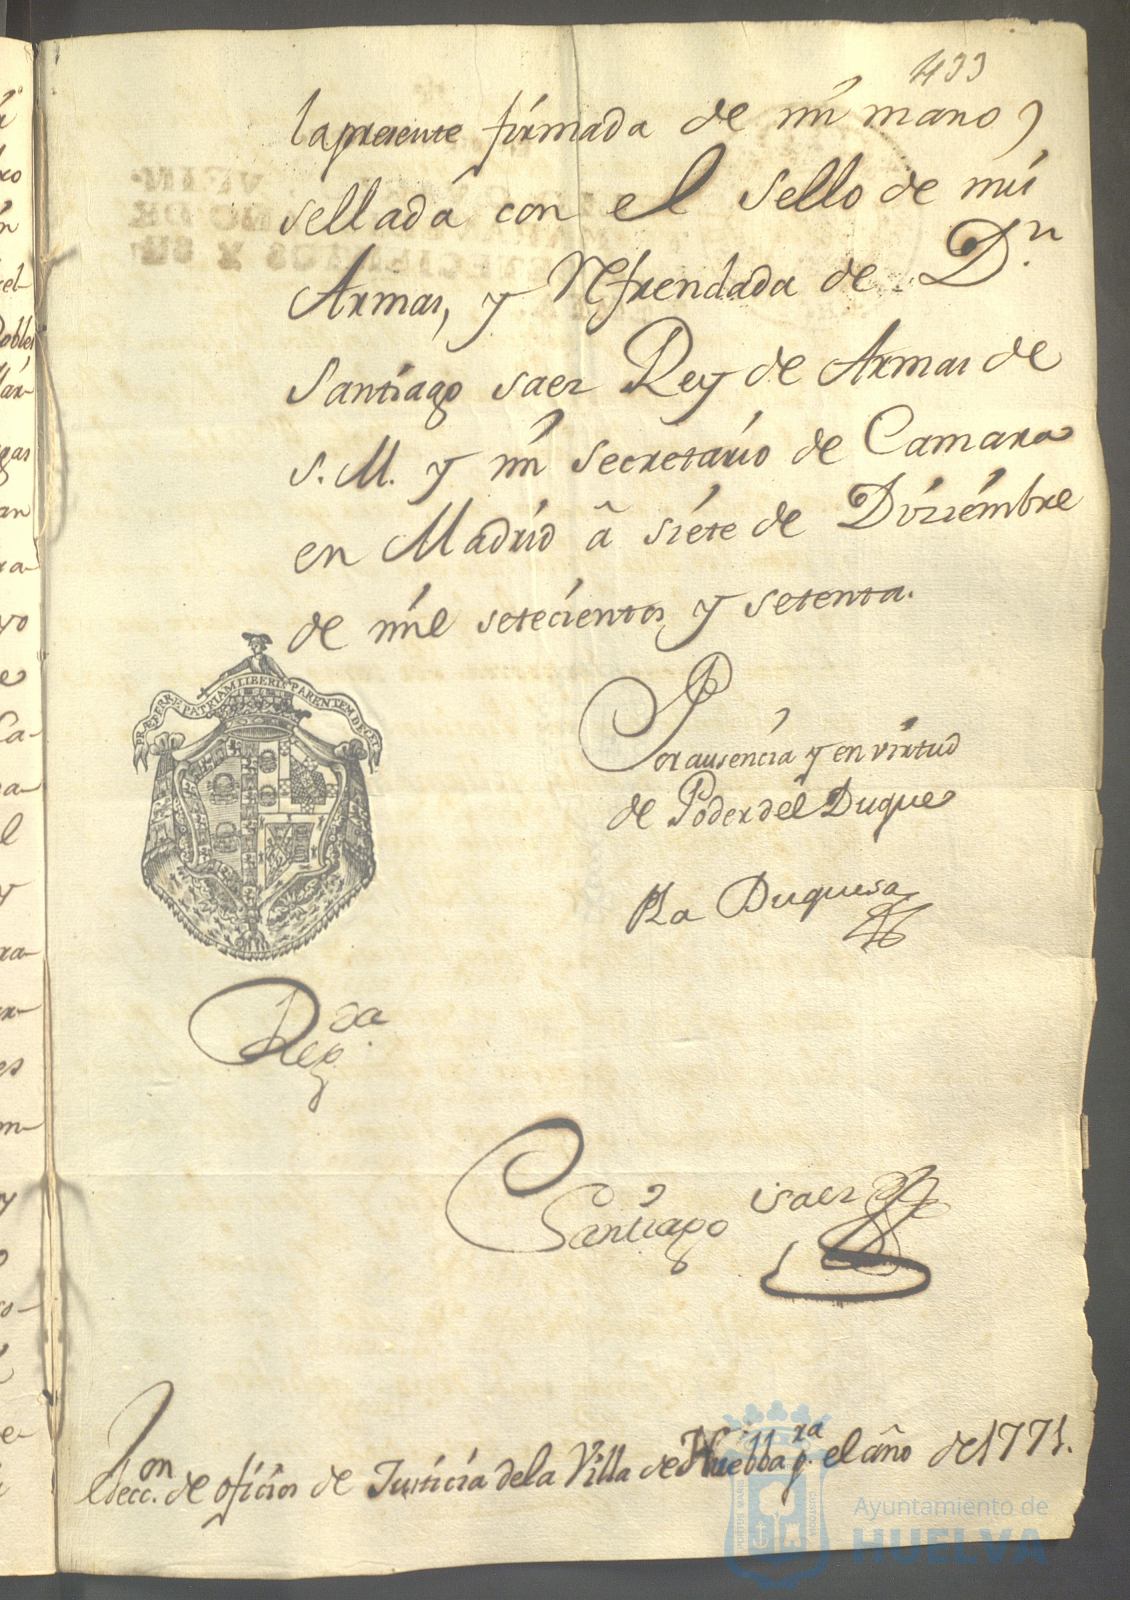 433
la presente firmada de mi mano,
sellada con el sello de mis
Armas, y Refrendada de Dn.
Santiago saez Rey de Armas de
S. M. y mi secretario de Camara
en Madrid â siete de Diziembre
de mil setecientos y setenta.
PRÆFERRE PATRIAM LIBERIS PARENTEM DECET
Por ausencia y en virtud
de Poder del Duque
La Duquesa
Regda.
Santiago saez
Eleccon. de oficios de Justicia de la Villa de Huelba pra. el año de 1771.
Ayuntamiento de
HUELVA